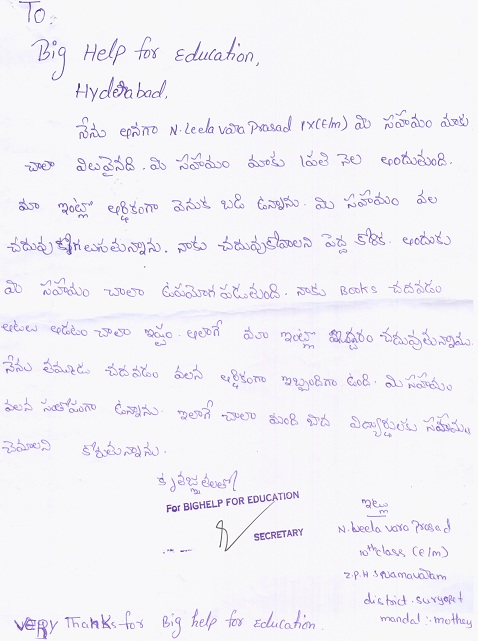 To:
Big Help for Education,
Hyderabad,
నేను అనగా N. Leela vara Prasad IX(E/m) మి సహయం మాకు
చాలా విలువైనది. మి సహయం మాకు ప్రతి నెల అందుతుంది.
మా ఇంట్లో ఆర్థికంగా వెనుక బడి ఉన్నాను. మి సహయం వల
చదువుకోగలుగుతున్నాను. నాకు చదువుకోవాలని పెద్ద కోరిక. అందుకు
మి సహయం చాలా ఉపయోగ పడుతుంది. నాకు Books చదవడం
ఆటలు ఆడటం చాలా ఇష్టం. అలాగే మా ఇంట్లో ఇద్దరం చదువుతున్నాము.
నేను తమ్ముడు చదవడం వలన ఆర్థికంగా ఇబ్బందిగా ఉంది. మి సహయం
వలన సంతోషంగా ఉన్నాను. ఇలాగే చాలా మంది బీద విద్యార్థులకు సహయం
చెయాలని కోరుతున్నాను.
కృతజ్ఞతలతో
For BIGHELP FOR EDUCATION
SECRETARY
ఇట్లు
N. Leela vara Prasad
10th class (E/m)
Z.P.H.S
district. Suryapet
mandal :- mothey
VERY Thanks for Big help for Education.